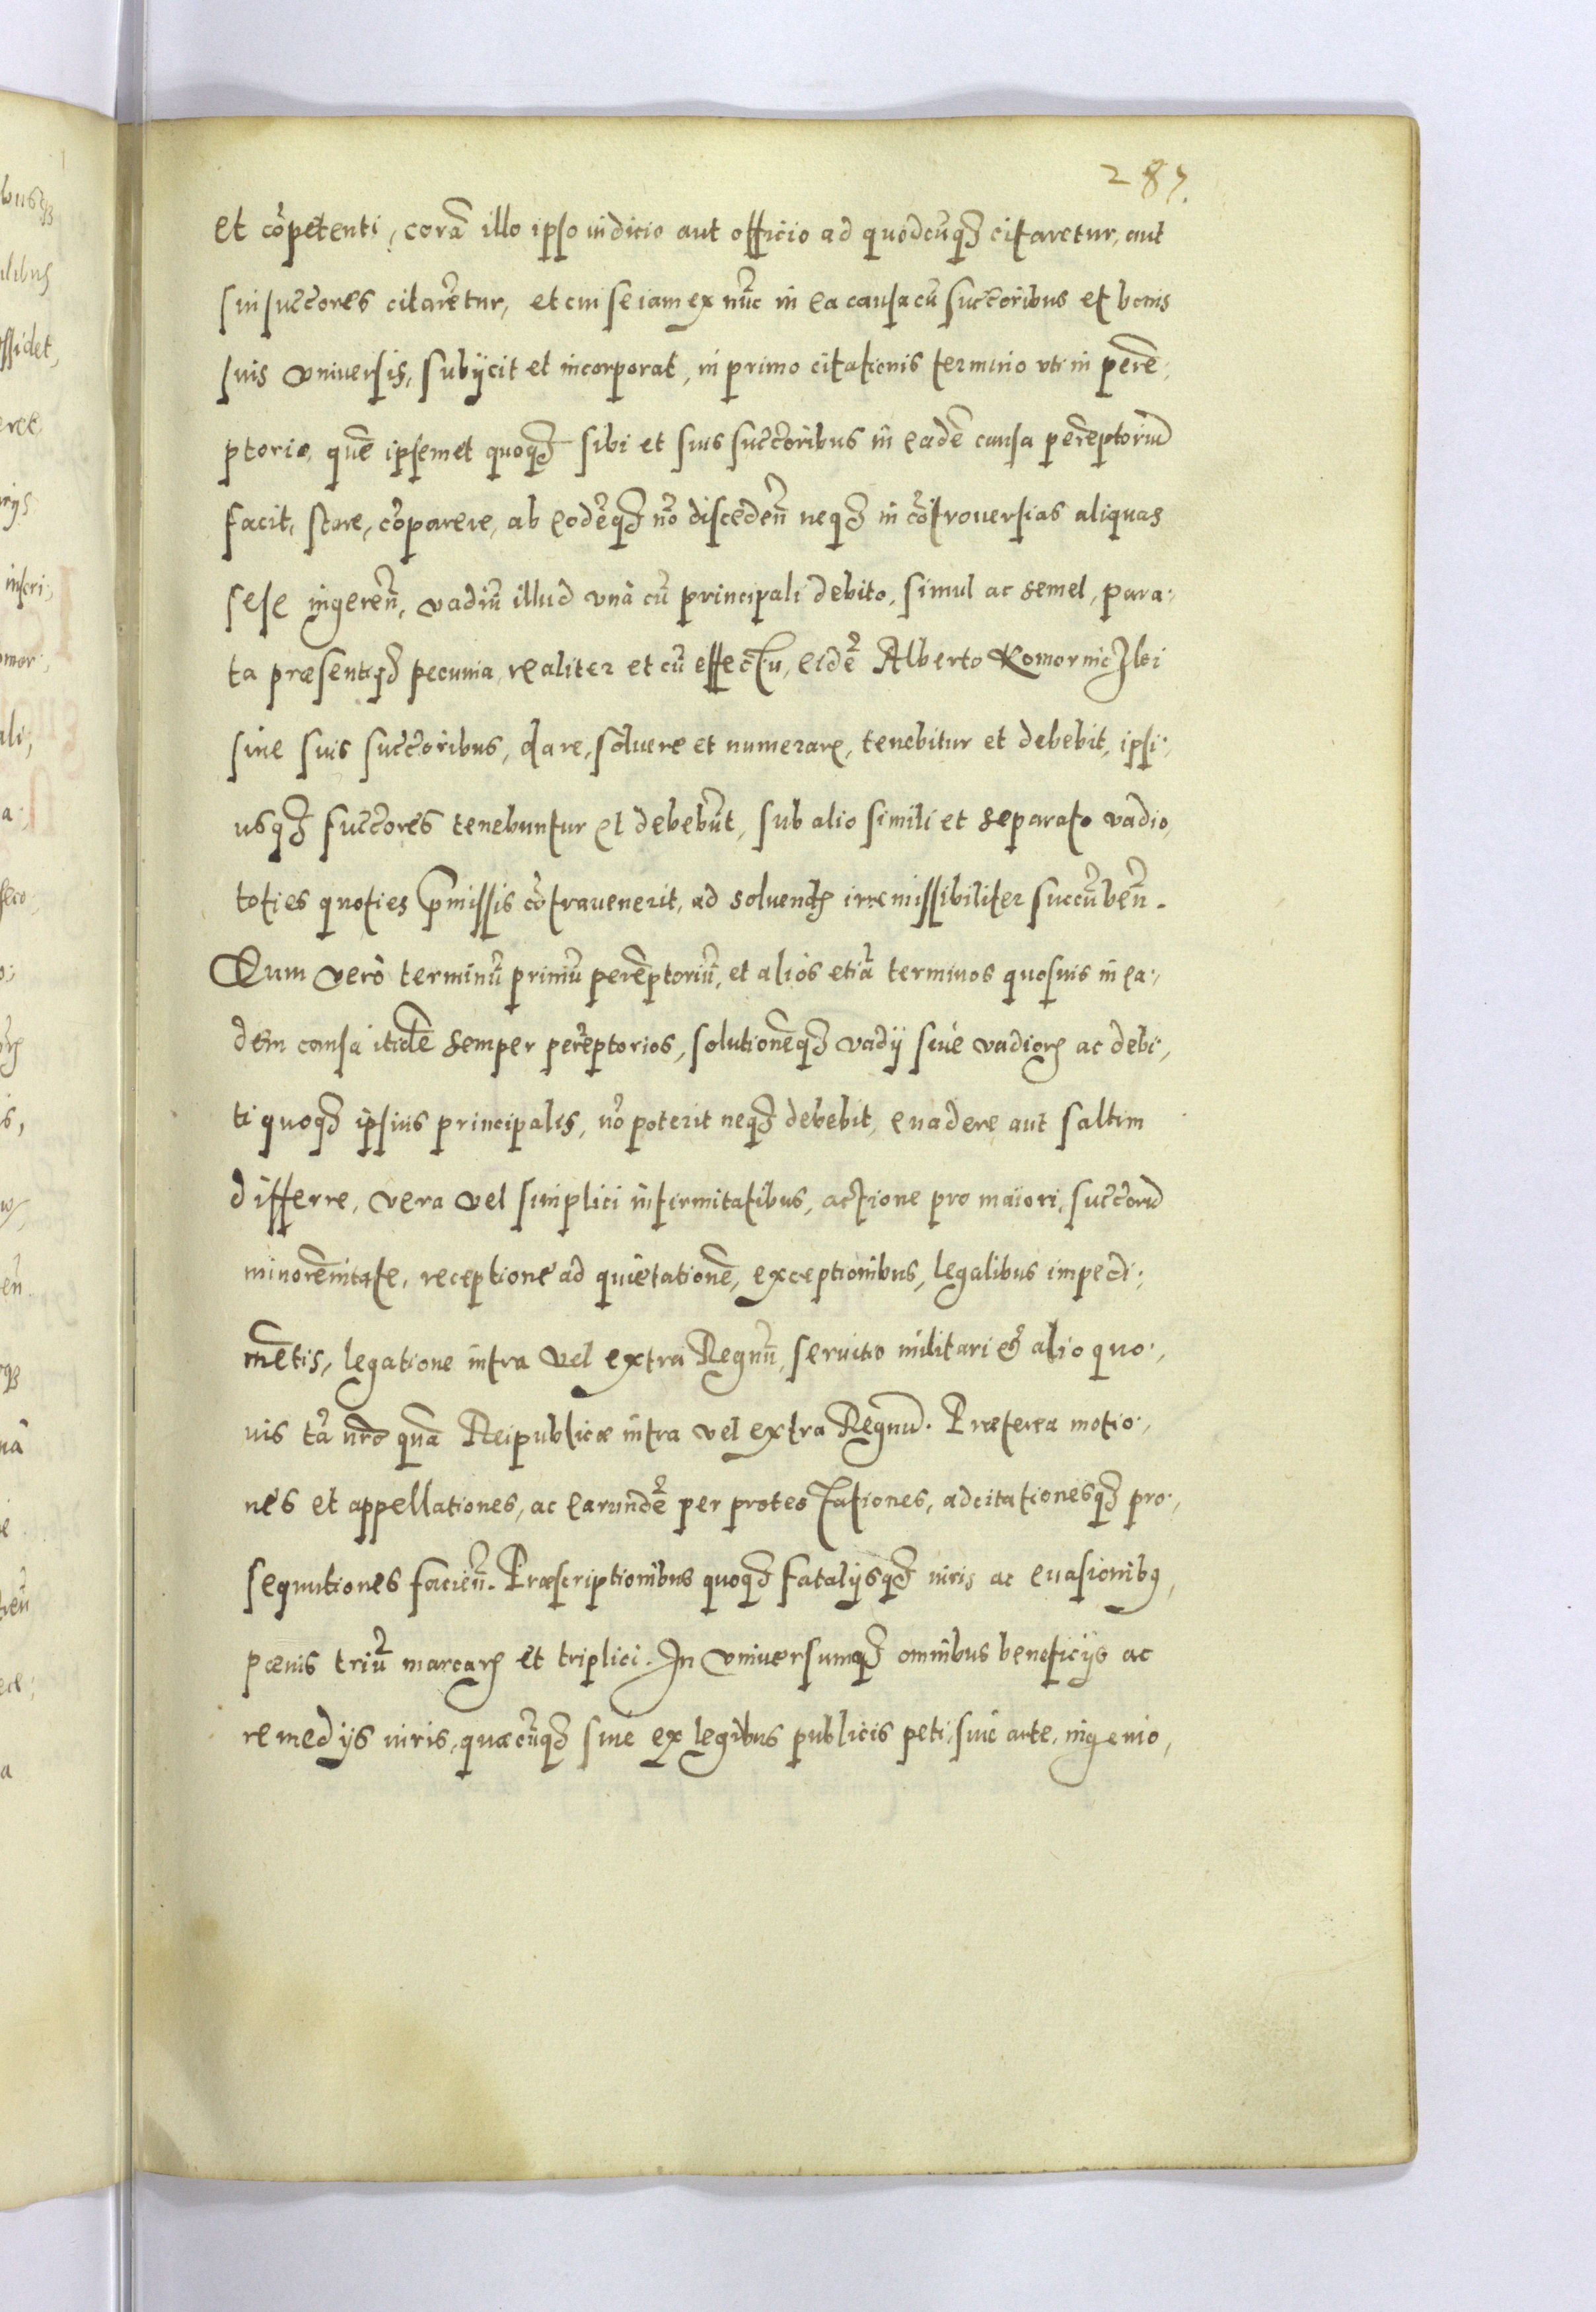 287.
et cõpetenti, corã illo ipso iudicio aut officio ad quodcũqꝫ citaretur, aut
sui succores citarẽtur, et cui se iam ex nũc in ea causa cũ succoribus et bonis
suis vniuersis, subijcit et incorporat, in primo citationis termino vti in perẽ,
ptorio, quẽ ipsemet quoqꝫ sibi et suis succoribus in eadẽ causa perẽptoriũ
facit, stare, cõparere, ab eodẽqꝫ nõ disceden̄ neqꝫ in cõtrouersias aliquas
sese ingeren̄, vadiũ illud vnà cũ principali debito, simul ac semel, para,
ta præsentiqꝫ pecunia, realiter et cũ effectu, eidẽ Alberto Komorniczkei
siue suis succoribus, dare, soluere et numerare, tenebitur et debebit, ipsi,
usqꝫ succores tenebuntur et debebũt, sub alio simili et separato vadio,
toties quoties p̃missis cõtrauenerit, ad soluendꝝ irremissibiliter succũben̄.
Quum verò terminũ primũ perẽptoriũ, et alios etiã terminos quosuis in ea,
dem causa itidẽ semper perẽptorios, solutionẽqꝫ vadij siue vadioꝝ ac debi,
ti quoqꝫ ipsius principalis, nõ poterit neqꝫ debebit, euadere aut saltim
differre, vera vel simplici infirmitatibus, actione pro maiori, succorũ
minorẽnitate, receptione ad quietationẽ, exceptionibus, legalibus impedi,
mẽtis, legatione intra vel extra Regnũ, seruitio militari et alio quo,
uis tã nr̃o quã Reipublicæ intra vel extra Regnũ. Præterea motio,
nes et appellationes, ac earundẽ per protestationes, adcitationesqꝫ pro,
sequutiones facien̄. Præscriptionibus quoqꝫ fatalijsqꝫ iuris ac euasionibꝰ,
pœnis triũ marcaꝝ et triplici. In vniuersumqꝫ omnibus beneficijs ac
remedijs iuris, quæcũqꝫ siue ex legibus publicis peti, siue arte, ingenio,